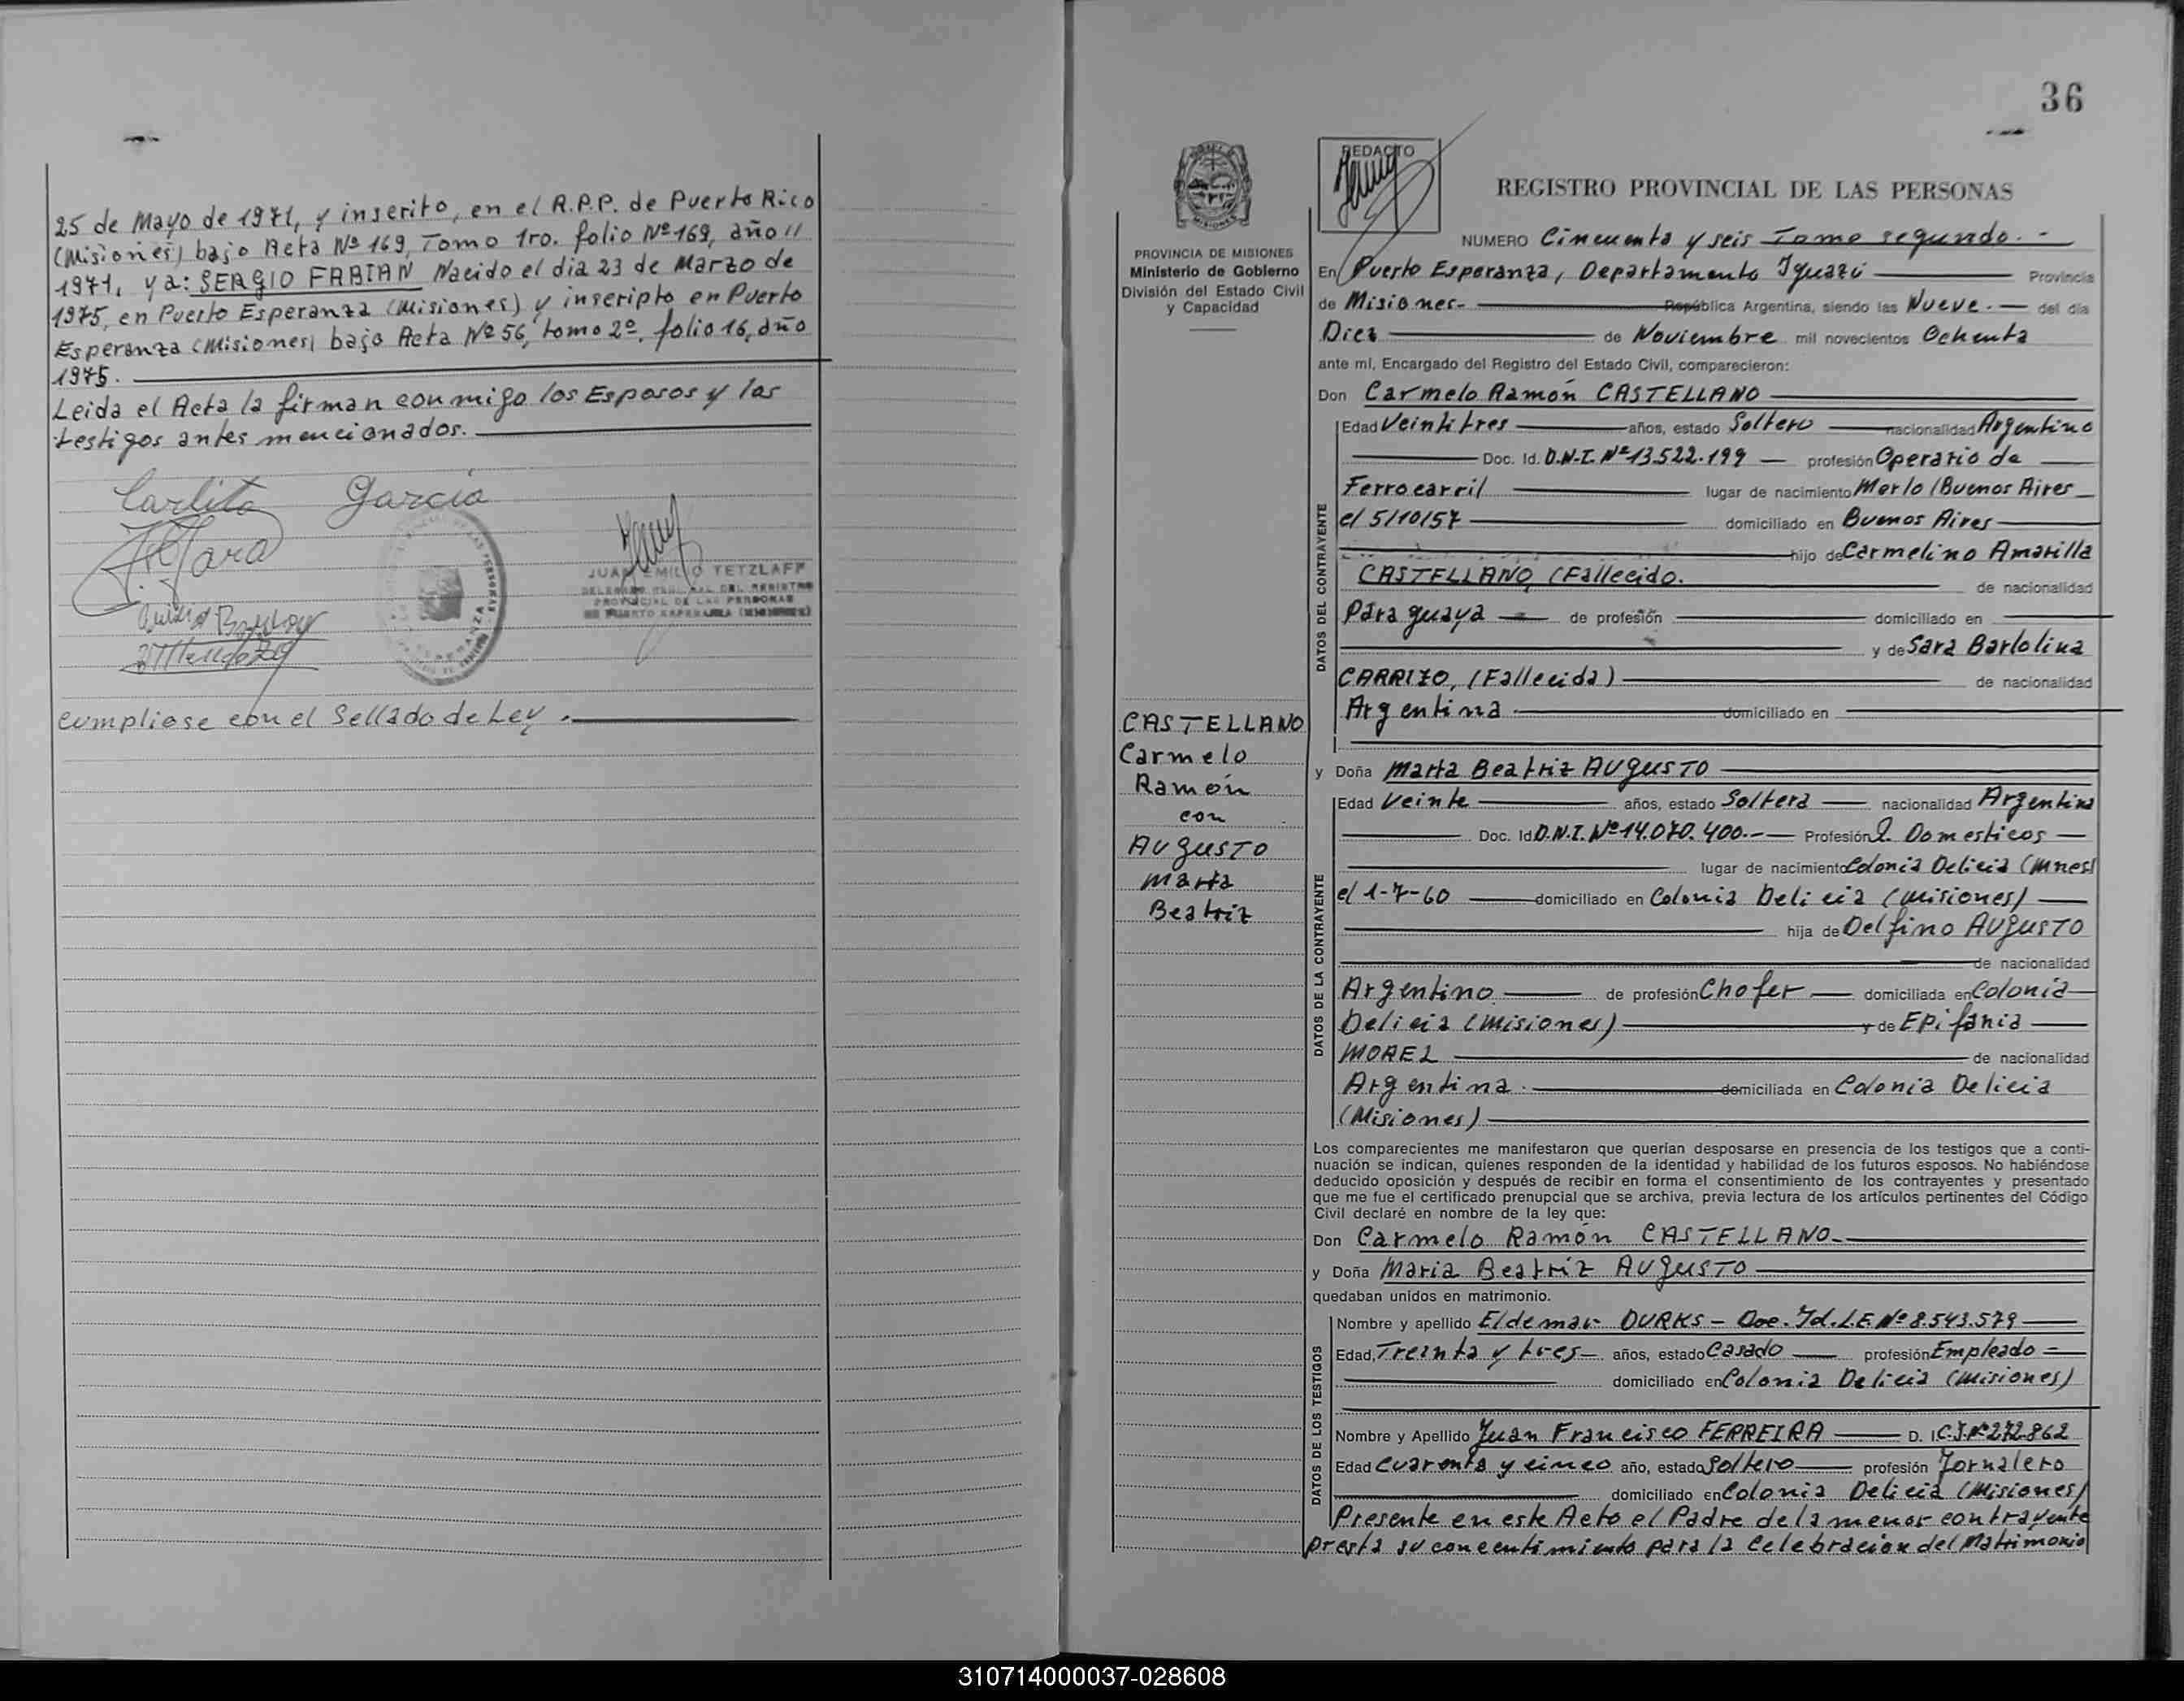 25 de Mayo de 1971, y inscrito, en el R.P.P. de Puerto Rico
(Misiones) bajo Acta Nº 169, Tomo 1ro. folio Nº 169, año //
1971, y a: SERGIO FABIAN Nacido el dia 23 de Marzo de
1975, en Puerto Esperanza (Misiones) y inscripto en Puerto
Esperanza (Misiones) bajo Acta Nº 56, tomo 2º, folio 16, año
1975.
Leida el Acta la firman conmigo los Esposos y los
testigos antes mencionados.
Carlito García
JUAN EMILIO TETZLAFF
PROVINCIAL DE LAS PERSONAS
cumpliose con el Sellado de Ley.
36
REDACTO
REGISTRO PROVINCIAL DE LAS PERSONAS
PROVINCIA DE MISIONES
Ministerio de Gobierno
División del Estado Civil
y Capacidad
NUMERO Cincuenta y seis Tomo segundo.-
En Puerto Esperanza, Departamento Iguazú Provincia
de Misiones- República Argentina, siendo las Nueve.- del día
Diez de Noviembre mil novecientos Ochenta
ante mí, Encargado del Registro del Estado Civil, comparecieron:
Don Carmelo Ramón CASTELLANO
DATOS DEL CONTRAYENTE
Edad Veintitres años, estado Soltero nacionalidad Argentino
Doc. Id. D.N.I. Nº 13.522.199 profesión Operario de
Ferrocarril lugar de nacimiento Merlo (Buenos Aires
el 5/10/57 domiciliado en Buenos Aires
hijo de Carmelino Amarilla
CASTELLANO, (Fallecido. de nacionalidad
Paraguaya de profesión domiciliado en
y de Sara Bartolina
CARRIZO, (Fallecida) de nacionalidad
Argentina domiciliado en
CASTELLANO
Carmelo
Ramón
con
AUGUSTO
Marta
Beatriz
y Doña Marta Beatriz AUGUSTO
DATOS DE LA CONTRAYENTE
Edad Veinte años, estado Soltera nacionalidad Argentina
Doc. Id D.N.I. Nº 14.070.400.- Profesión Q. Domesticos
lugar de nacimiento Colonia Delicia (Mnes)
el 1-7-60 domiciliado en Colonia Delicia (Misiones)
hija de Delfino AUGUSTO
de nacionalidad
Argentino de profesión Chofer domiciliada en Colonia
Delicia (Misiones) y de Epifania
MOREL de nacionalidad
Argentina domiciliada en Colonia Delicia
(Misiones)
Los comparecientes me manifestaron que querían desposarse en presencia de los testigos que a conti-
nuación se indican, quienes responden de la identidad y habilidad de los futuros esposos. No habiéndose
deducido oposición y después de recibir en forma el consentimiento de los contrayentes y presentado
que me fue el certificado prenupcial que se archiva, previa lectura de los artículos pertinentes del Código
Civil declaré en nombre de la ley que:
Don Carmelo Ramón CASTELLANO-
y Doña Maria Beatriz AUGUSTO
quedaban unidos en matrimonio.
DATOS DE LOS TESTIGOS
Nombre y apellido Eldemar DURKS - Doc. Id. L.E. Nº 8.543.579
Edad, Treinta y tres- años, estado Casado profesión Empleado
domiciliado en Colonia Delicia (Misiones)
Nombre y Apellido Juan Francisco FERREIRA D. I C.I. Nº 272.862
Edad Cuarenta y cinco año, estado Soltero profesión Jornalero
domiciliado en Colonia Delicia (Misiones)
Presente en este Acto el Padre de la menor contrayente
presta su concentimiento para la Celebracion del Matrimonio
310714000037-028608